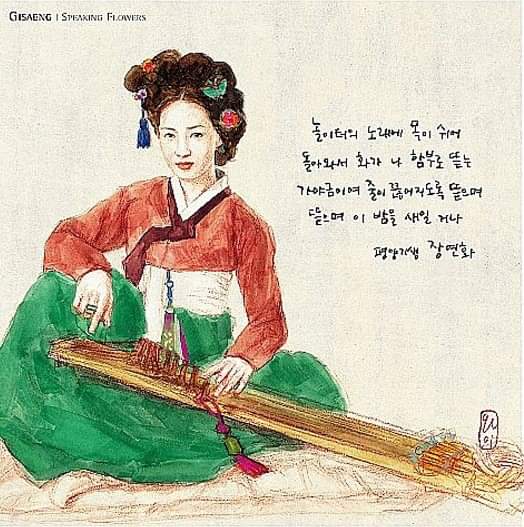 GISAENG | SPEAKING FLOWERS
놀이터의 노래에 목이 쉬어
돌아와서 화가 나 함부로 뜯는
가야금이여 줄이 끊어지도록 뜯으며
뜯으며 이 밤을 새일 거나
평양기생 장연화